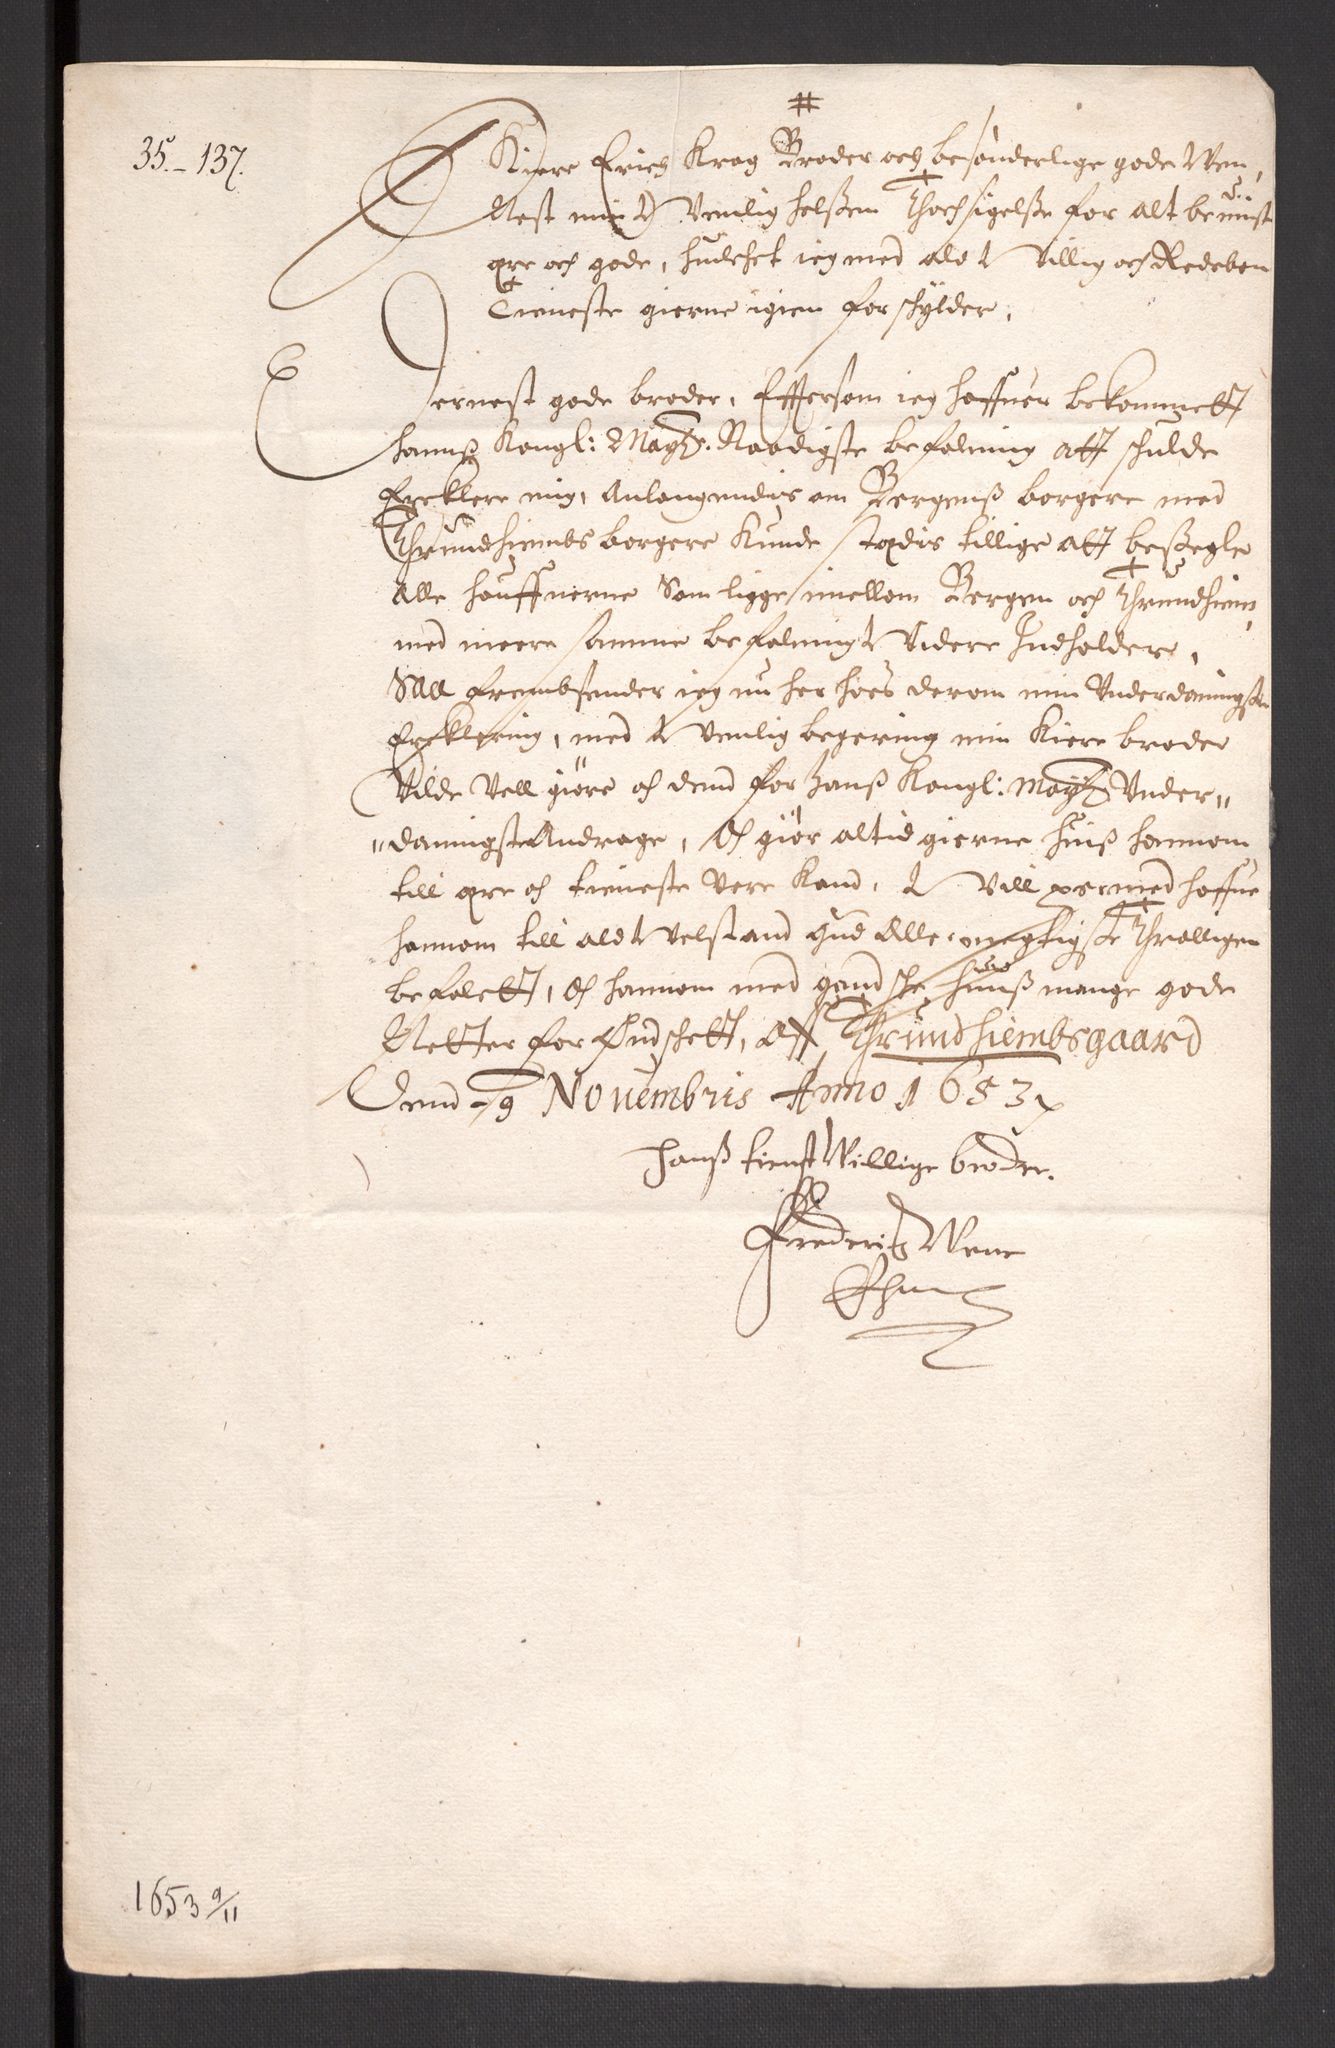 35.-137.
Kiere Erich Krag Broder och besønderlige gode Wen,
Nest min Venlig helßen Thachsigelße for alt beuist
ære och gode, huilchet ieg med aldt Villig och Redebon
Tieneste gierne igien forschylder,
Dernest gode broder, Effttersom ieg haffuer bekommett
hannß Kongl: Maytz. Naadigste befalning att schulde
Ereklere mig, Anlangendis om Bergenß borgere med
Thrundhiembs borgere Kunde stædis tillige att beßegle
alle hauffnerne Som ligge imellom Bergen och Thrundhiem,
med meere samme befalning Videre Indholder,
Saa frembsender ieg nu her hoes derom min Vnderdanigste
Ereklering, med Venlig begering min Kiere broder
Vilde Vell giøre oc dend for hanß Kongl: Maytz Vnder„
„daningste Andrage, Oc giør altid gierne huiß hannom
till ære oc tieneste Vere Kand, Vill hermed haffue
hannom till aldt Velstand Gud Allermegtigste Throligen
befalett, Oc hannom med gandsche huuß mange gode
Netter for Ønschett, Aff Thrundhiembsgaard
Dend 9 Novembris Anno 1653
Hanß tienstWillige broder.
Frederich Wrne
Ehn
1653 9/11